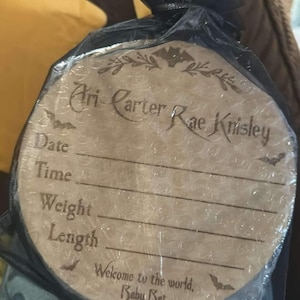 Ari Carter
Rae Knisley
Date
Time
Weight
Length
Welcome to the world,
Baby Bat